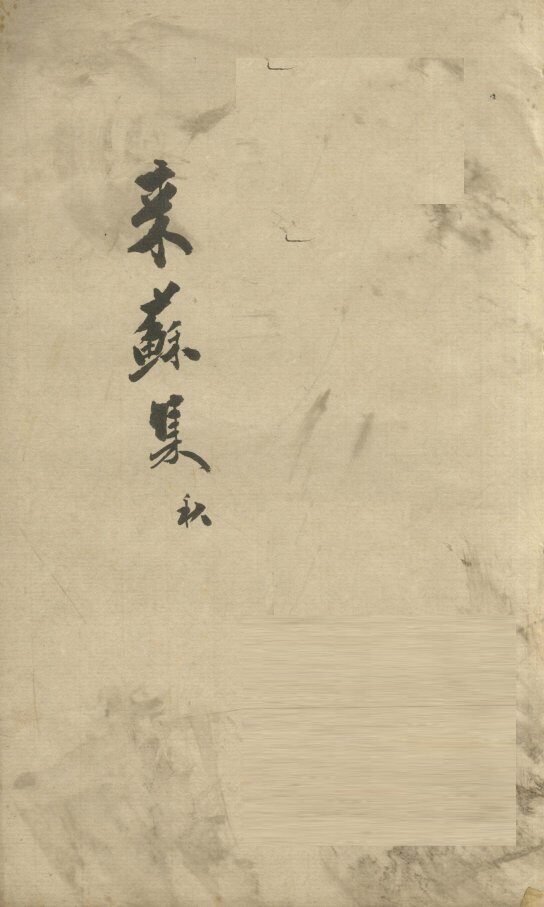 来蘇集 秋